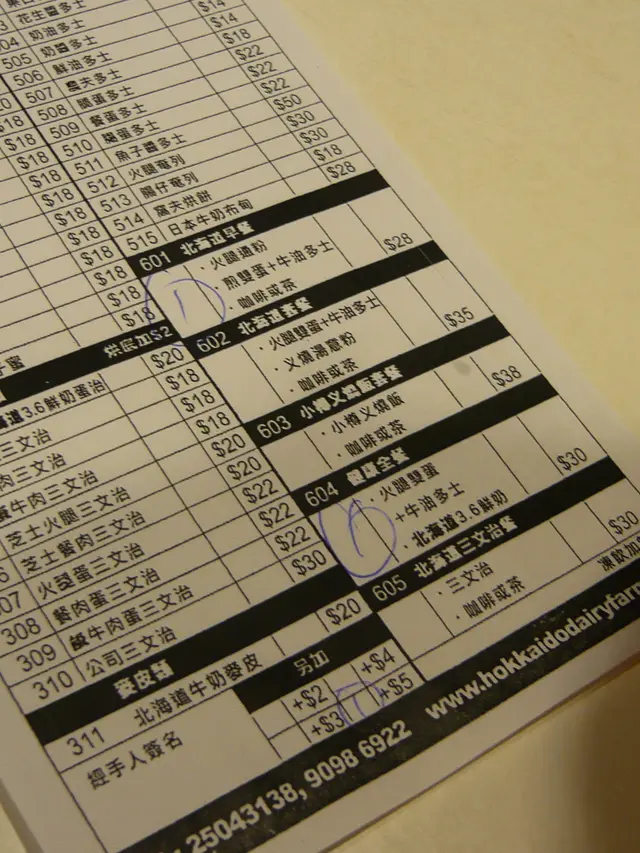 花生醬多士
504 奶油多士 $14
505 奶醬多士 $14
506 鮮油多士 $18
507 $22
508 腿蛋多士 $22
509 餐蛋多士 $22
510 $50
511 魚子醬多士 $30
512 火腿奄列 $30
513 腸仔奄列 $18
514 窩夫烘餅 $28
515 日本牛奶布甸
$18
$18
$18
$18
$18
$18
$18
$18
$18
烘底加$2
3.6鮮奶蛋治 $20
三文治 $18
肉三文治 $18
牛肉三文治 $18
芝士火腿三文治 $20
芝士餐肉三文治 $20
307 火腿蛋三文治 $22
308 餐肉蛋三文治 $22
309 鹹牛肉蛋三文治 $22
310 公司三文治 $30
麥皮類
311 北海道牛奶麥皮 $20
經手人簽名
另加
+$2 +$4
+$3 1 +$5
601 北海道早餐
· 火腿通粉 $28
· 煎雙蛋+牛油多士
· 咖啡或茶
1
602 北海道套餐
· 火腿雙蛋+牛油多士 $35
· 叉燒湯意粉
· 咖啡或茶
603 小樽叉燒飯套餐
· 小樽叉燒飯 $38
· 咖啡或茶
604 健康全餐
· 火腿雙蛋 $30
+牛油多士
· 北海道3.6鮮奶
1
605 北海道三文治餐
· 三文治 $30
· 咖啡或茶
凍飲加
25043138, 9098 6922 www.hokkaidodairyfarm